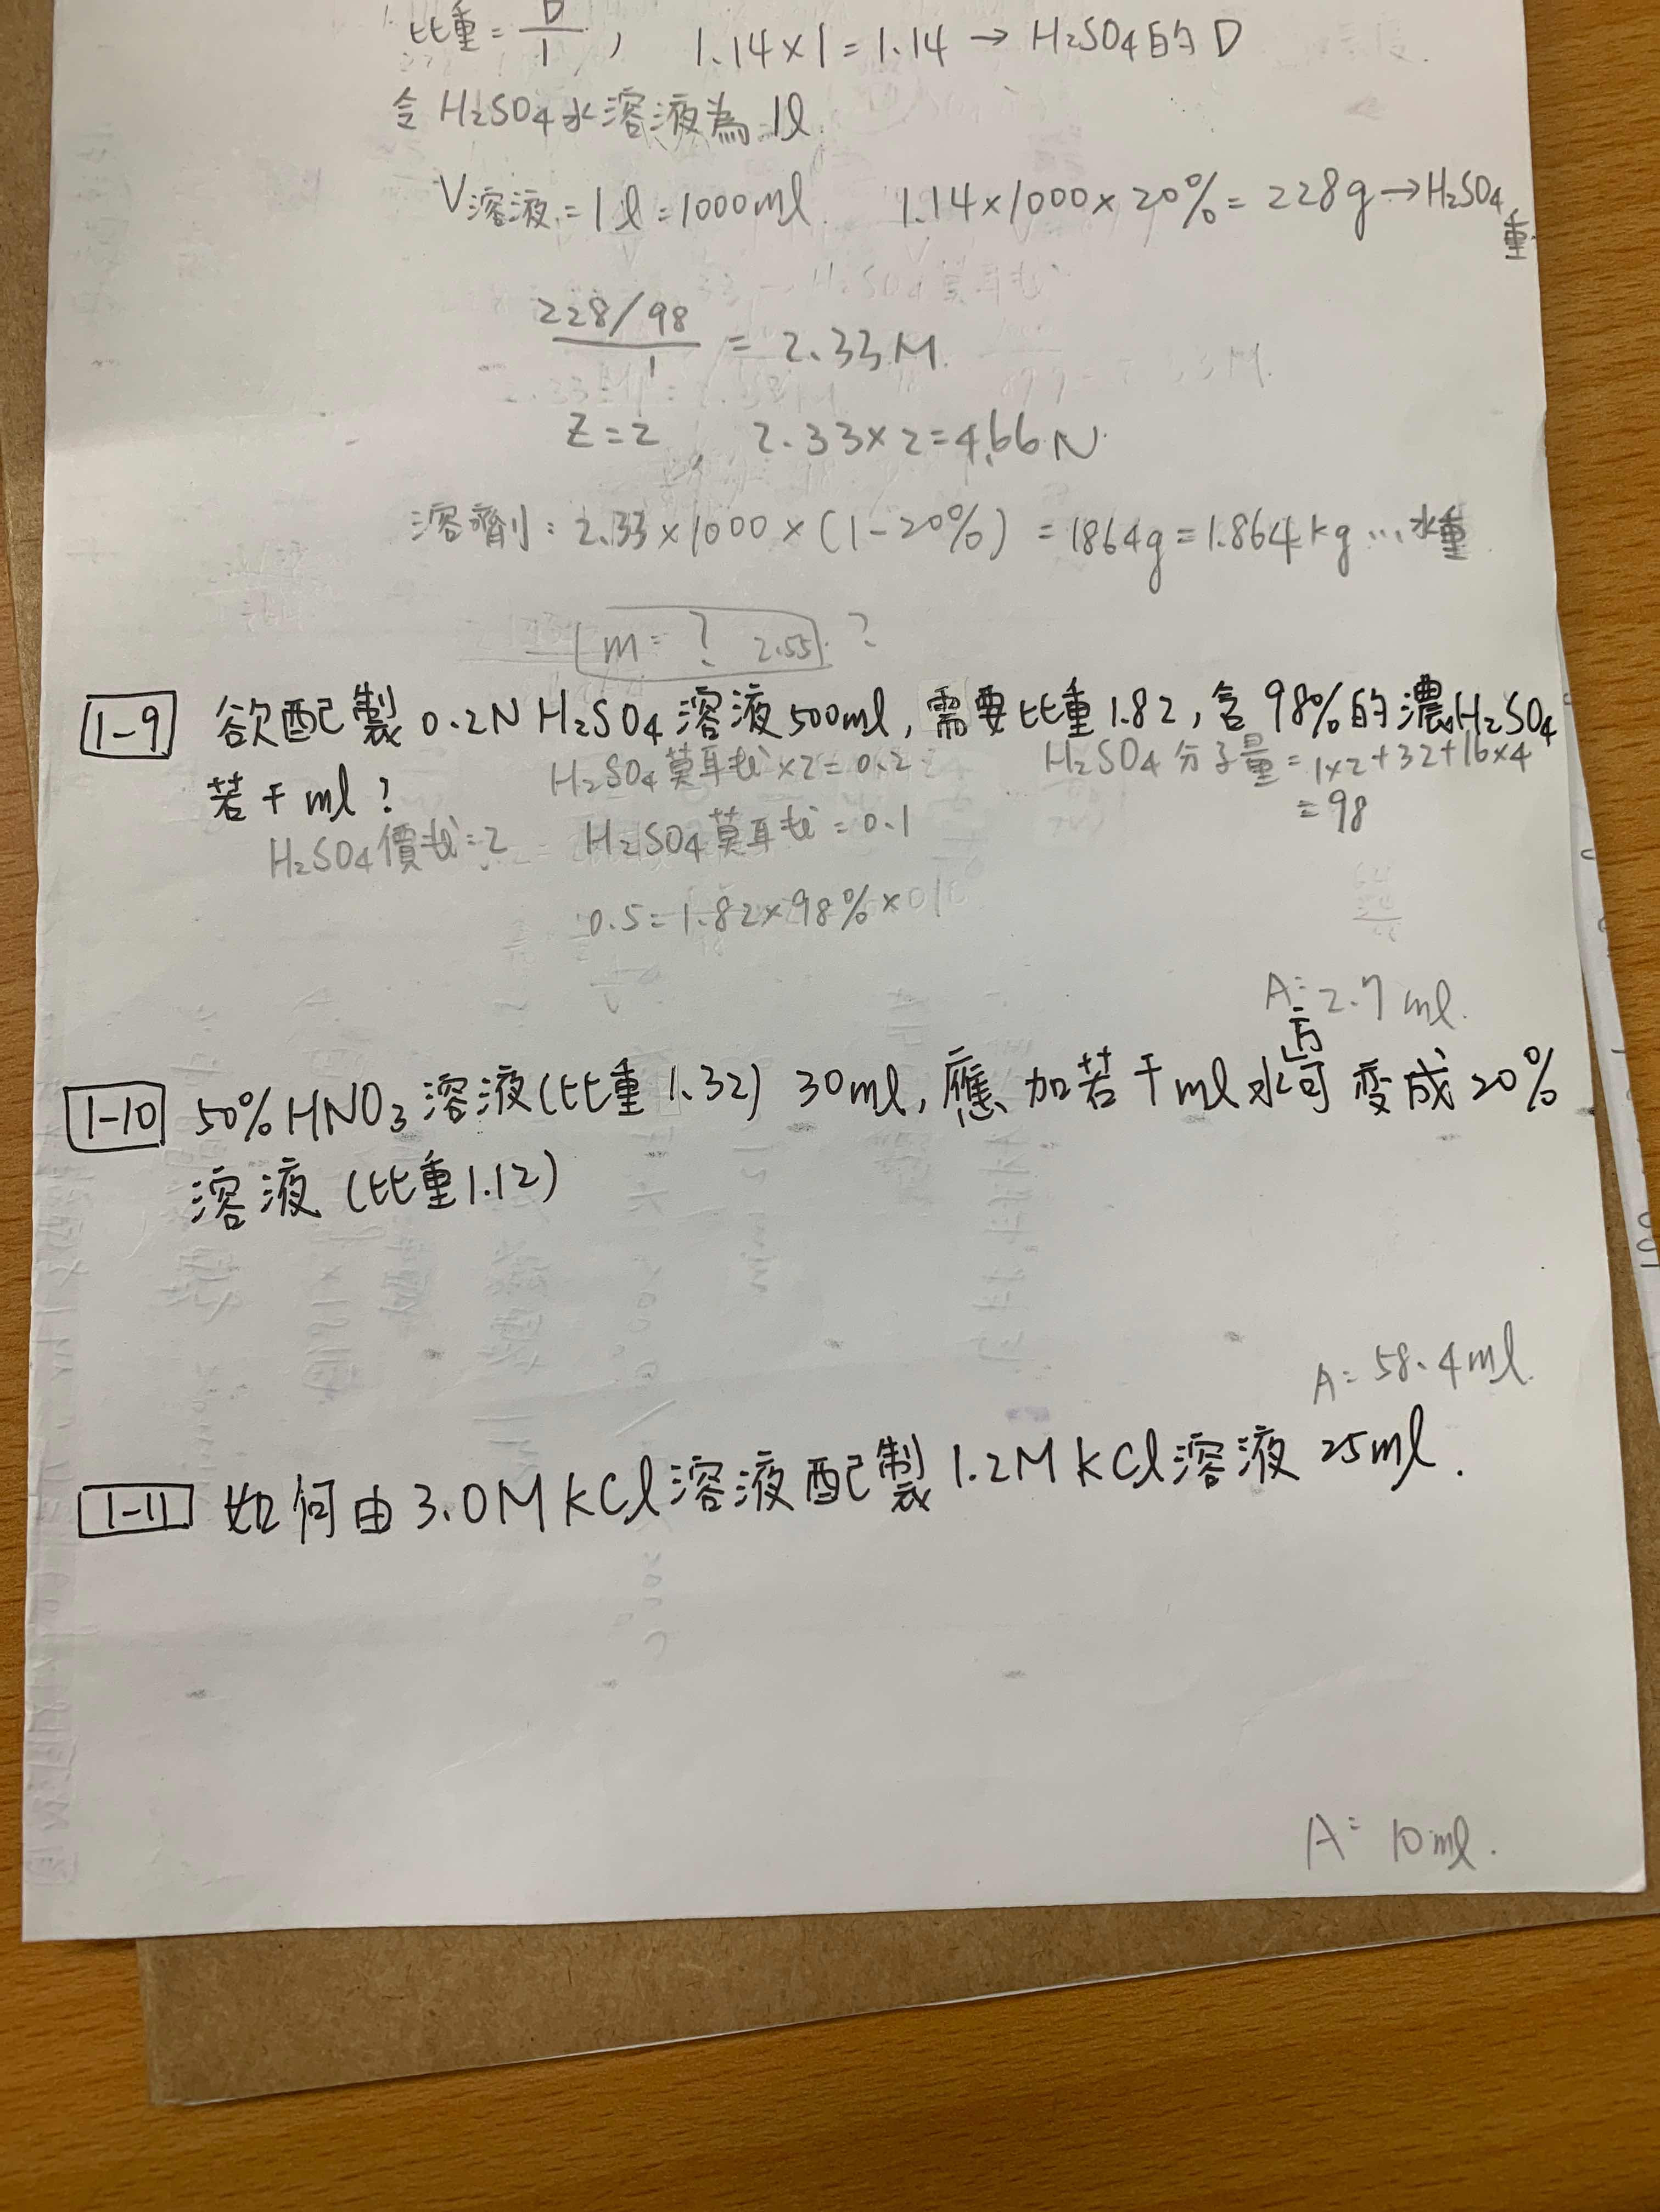 比重=D/1, 1.14×1=1.14→H₂SO₄的D
令H₂SO₄水溶液為1l
V溶液=1l=1000ml 1.14×1000×20%=228g→H₂SO₄重
(228/98)/1=2.33M
Z=2, 2.33×2=4.66N
溶劑:2.33×1000×(1-20%)=1864g=1.864kg…水重
m=? 2.55 ?
1-9 欲配製0.2N H₂SO₄溶液500ml,需要比重1.82,含98%的濃H₂SO₄
若干ml?
H₂SO₄莫耳数×2=0.2 H₂SO₄分子量=1×2+32+16×4
=98
H₂SO₄價数=2 H₂SO₄莫耳数=0.1
0.5=1.82×98%×
A=2.7ml.
1-10 50%HNO₃溶液(比重1.32) 30ml,應加若干ml水後可变成20%
溶液(比重1.12)
A=58.4ml.
1-11 如何由3.0M KCl溶液配製1.2M KCl溶液25ml.
A=10ml.